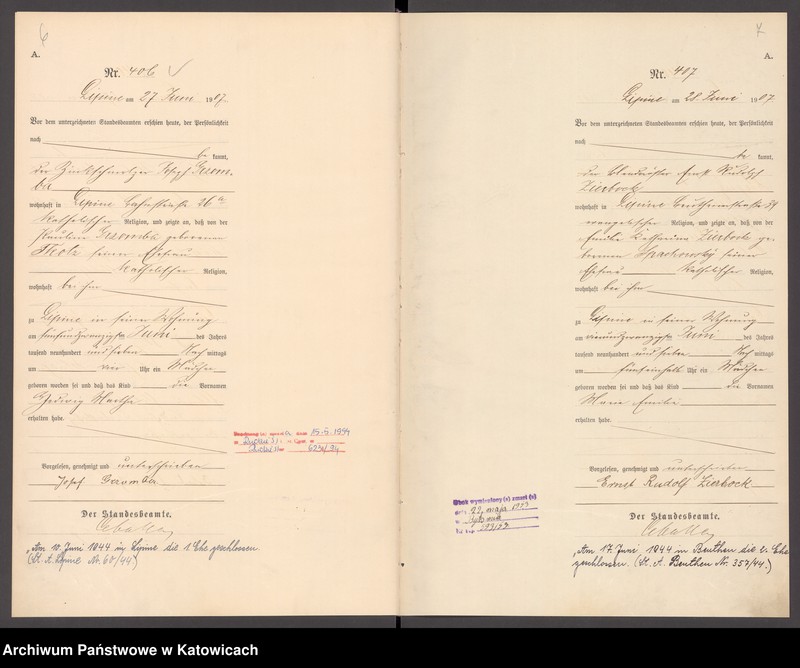 6
A.
Nr. 406
Lipine am 27 Juni 1907.
Vor dem unterzeichneten Standesbeamten erschien heute, der Persönlichkeit
nach
be kannt,
der Zinkschmelzer Josef
wohnhaft in Lipine Bahnstraße 26a
katholischer Religion, und zeigte an, daß von der
Pauline geborenen
seiner Ehefrau
katholischer Religion,
wohnhaft bei ihm
zu Lipine in seiner Wohnung
am fünfundzwanzigsten Juni des Jahres
tausend neunhundert und sieben Nachmittags
um vier Uhr ein Mädchen
geboren worden sei und daß das Kind die Vornamen
Hedwig Martha
erhalten habe.
15.5.1994
Vorgelesen, genehmigt und unterschrieben
Josef
Der Standesbeamte.
"Am 10. Juni 1944 in Lipine die 1 Ehe geschlossen.
(St. A. Lipine Nr. 60/44)
7
A.
Nr. 407
Lipine am 28. Juni 1907
Vor dem unterzeichneten Standesbeamten erschien heute, der Persönlichkeit
nach
be kannt,
der Ernst Rudolf
Zierbock
wohnhaft in Lipine
evangelischer Religion, und zeigte an, daß von der
Emilie Katharina Zierbock ge-
borenen seiner
Ehefrau katholischer Religion,
wohnhaft bei ihm
zu Lipine in seiner Wohnung
am Juni des Jahres
tausend neunhundert und sieben Nachmittags
um fünfeinhalb Uhr ein Mädchen
geboren worden sei und daß das Kind die Vornamen
Marie Emilie
erhalten habe.
Vorgelesen, genehmigt und unterschrieben
Ernst Rudolf Zierbock
Obok wymieniony (a) zmarł (a)
dnia 22 maja
Der Standesbeamte.
"Am 17. Juni 1944 in Beuthen die 2. Ehe
geschlossen. (St. A. Beuthen Nr. 357/44.)
Archiwum Państwowe w Katowicach